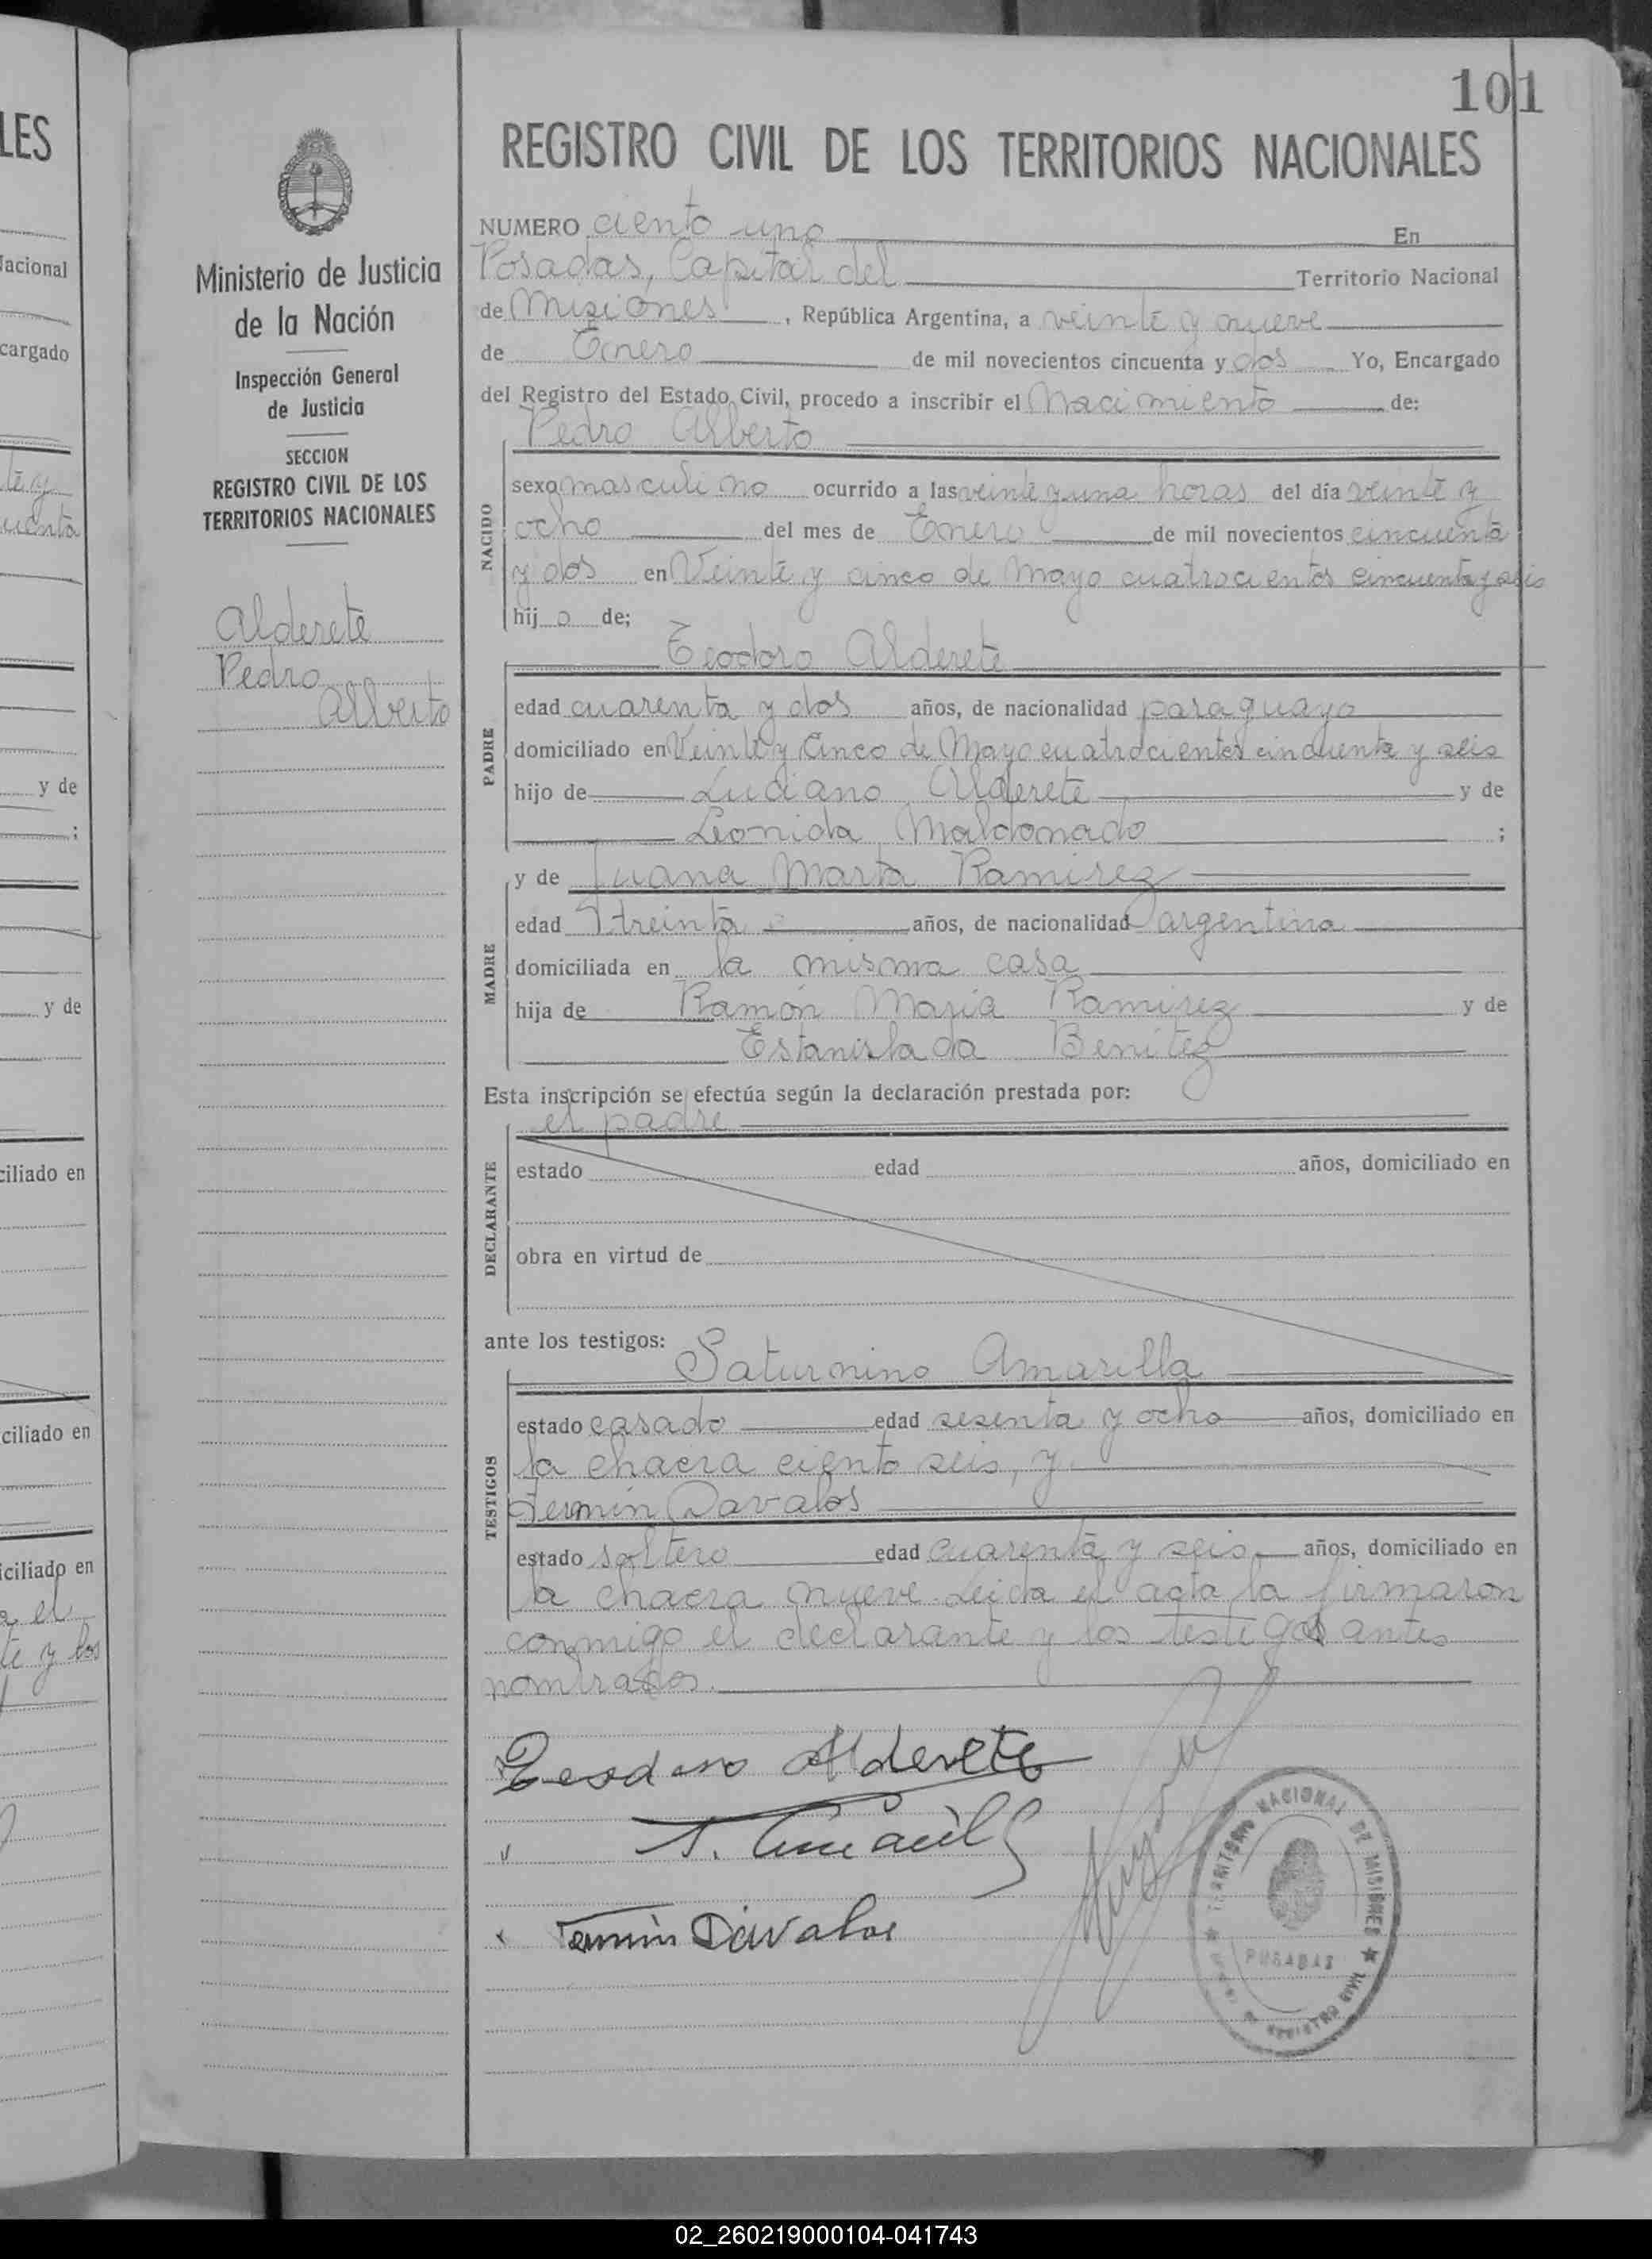 LES
Nacional
cargado
te y
cuenta
y de
;
y de
ciliado en
ciliado en
iciliado en
a el
te y los
Ministerio de Justicia
de la Nación
Inspección General
de Justicia
SECCION
REGISTRO CIVIL DE LOS
TERRITORIOS NACIONALES
Alderete
Pedro
Alberto
101
REGISTRO CIVIL DE LOS TERRITORIOS NACIONALES
NUMERO ciento uno En
Posadas, Capital del Territorio Nacional
de Misiones, República Argentina, a veinte y nueve
de Enero de mil novecientos cincuenta y dos Yo, Encargado
del Registro del Estado Civil, procedo a inscribir el Nacimiento de:
Pedro Alberto
NACIDO
sexo masculino ocurrido a las veinte y una horas del día veinte y
ocho del mes de Enero de mil novecientos cincuenta
y dos en Veinte y cinco de Mayo cuatrocientos cincuenta y seis
hijo de;
Teodoro Alderete
PADRE
edad cuarenta y dos años, de nacionalidad paraguayo
domiciliado en Veinte y Cinco de Mayo cuatrocientos cincuenta y seis
hijo de Luciano Alderete y de
Leonida Maldonado ;
y de Juana Marta Ramirez
MADRE
edad treinta años, de nacionalidad argentina
domiciliada en la misma casa
hija de Ramón Maria Ramirez y de
Estanislada Benitez
Esta inscripción se efectúa según la declaración prestada por:
el padre
DECLARANTE
estado edad años, domiciliado en
obra en virtud de
ante los testigos:
Saturnino Amarilla
TESTIGOS
estado casado edad sesenta y ocho años, domiciliado en
la chacra ciento seis, y
Fermín Davalos
estado soltero edad cuarenta y seis años, domiciliado en
la chacra nueve. Leida el acta la firmaron
conmigo el declarante y los testigos antes
nombrados.
Teodoro Alderete
Fermín Dávalos
TERRITORIO NACIONAL DE MISIONES
POSADAS
REGISTRO CIVIL
02_260219000104-041743